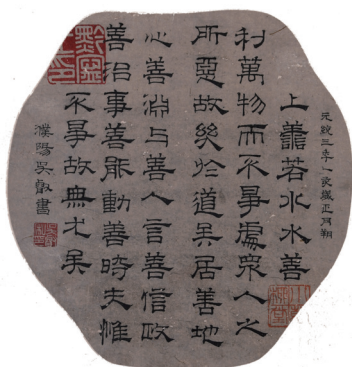 元統三年乙亥歲正月朔
上善若水水善
利萬物而不爭處眾人之
所惡故幾於道矣居善地
心善淵与善人言善信政
善治事善能動善時夫惟
不爭故無尤矣
濮陽吳叡書